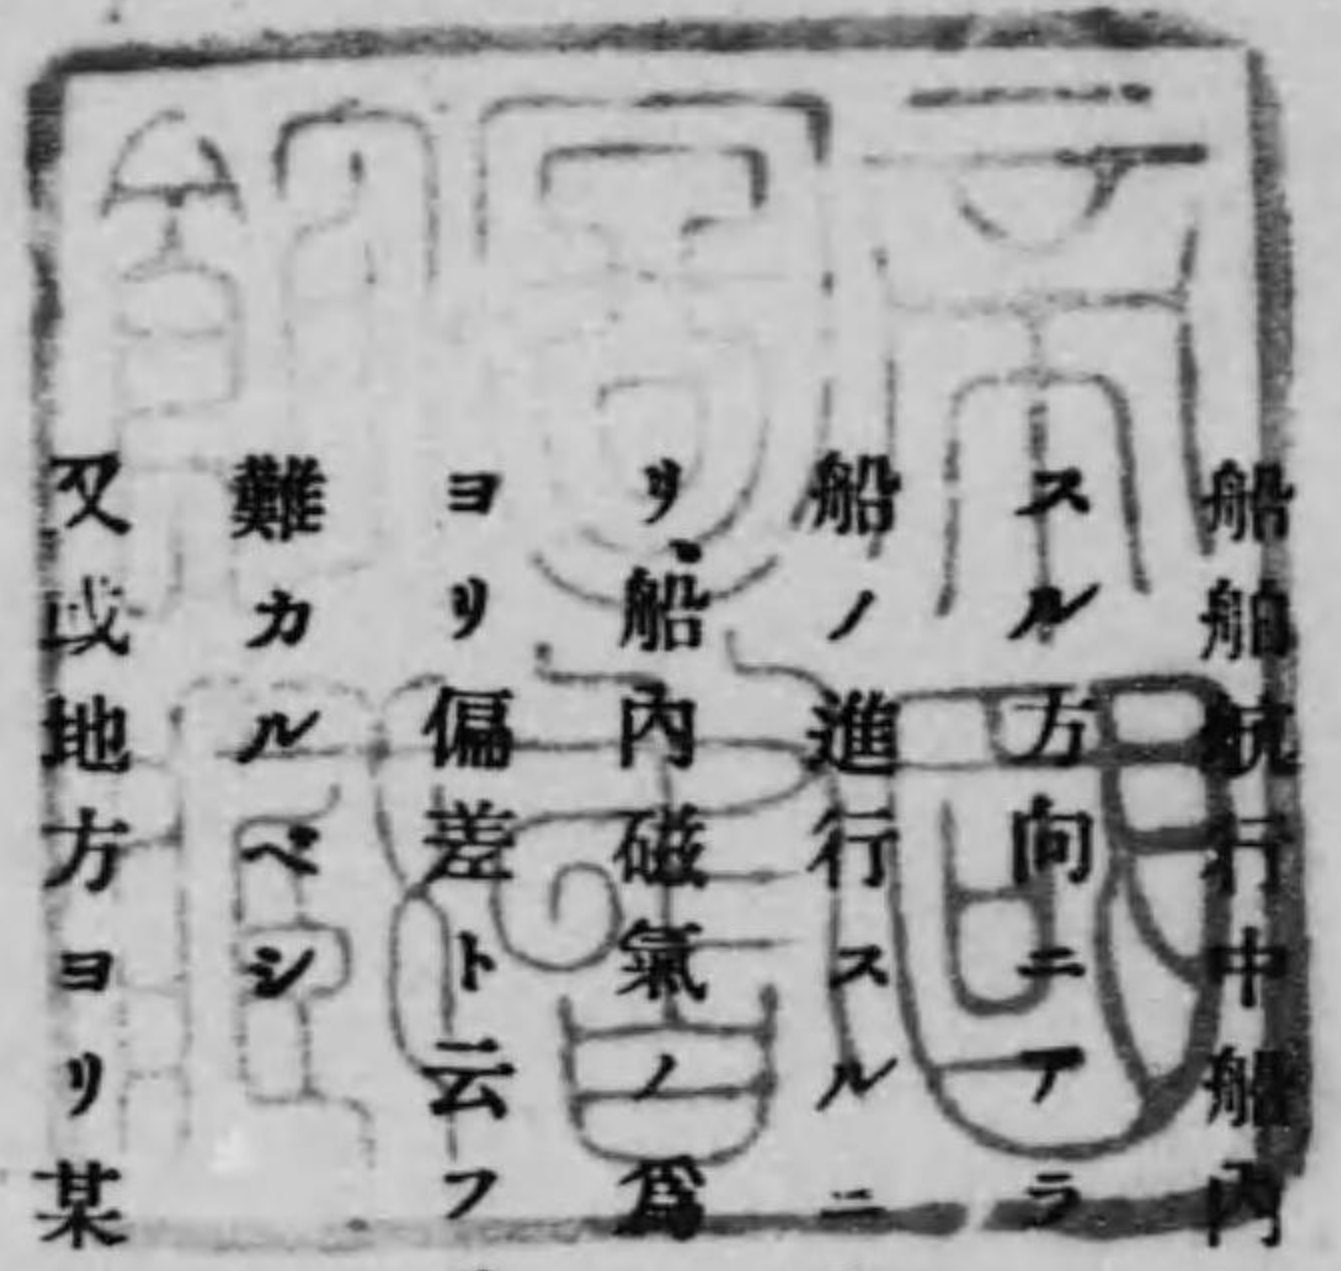 船舶航行中船內
スル方向ニアラ
船ノ進行スルニ
リ、船內磁氣ノ爲
ヨリ偏差ト云フ
難カルベシ
又或地方ヨリ某
帝國
圖書
館藏